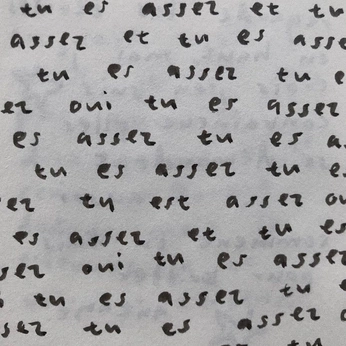 tu es assez et tu
assez et tu es asse
tu es assez tu e
ez oui tu es assez
es assez tu es a
tu es assez tu e
ez tu est assez ou
es assez et tu es
sez oui tu es assez
tu es assez tu
sez tu es assez o
tu